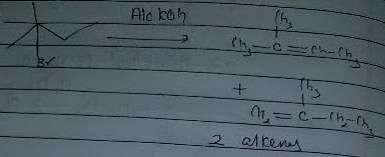 Alc KOH
CH3
CH3-C=CH-CH3
Br
+
CH3
CH2=C-CH2-CH3
2 alkenes